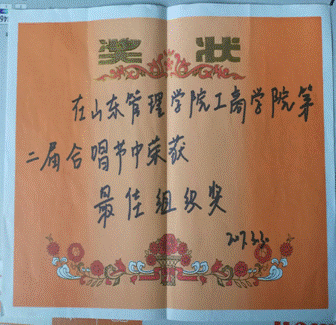 奖状
在山东管理学院工商学院第
二届合唱节中荣获
最佳组织奖